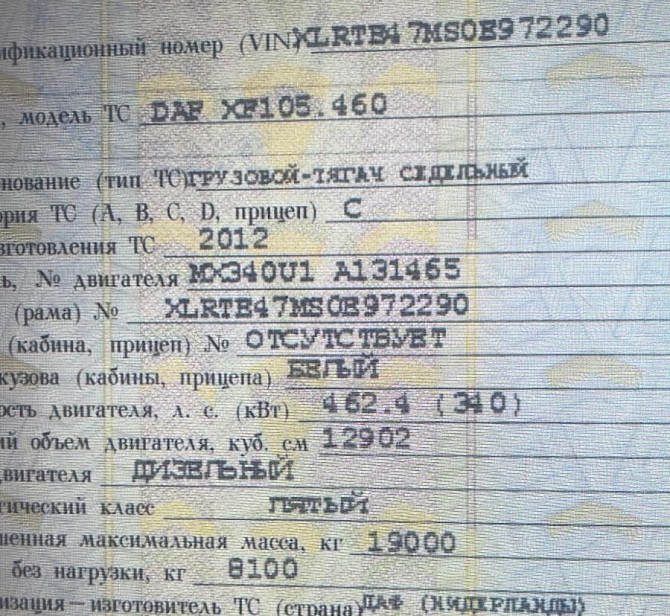 ификационный номер (VIN) XLRTE47MS0E972290
, модель ТС DAF XF105.460
нование (тип ТС) ГРУЗОВОЙ-ТЯГАЧ СЕДЕЛЬНЫЙ
ория ТС (A, B, C, D, прицеп) C
зготовления ТС 2012
ь, № двигателя MX340U1 A131465
(рама) № XLRTE47MS0E972290
(кабина, прицеп) № ОТСУТСТВУЕТ
кузова (кабины, прицепа) БЕЛЫЙ
ость двигателя, л. с. (кВт) 462.4 (340)
ий объем двигателя, куб. см 12902
двигателя ДИЗЕЛЬНЫЙ
гический класс ПЯТЫЙ
шенная максимальная масса, кг 19000
без нагрузки, кг 8100
изация—изготовитель ТС (страна) ДАФ (НИДЕРЛАНДЫ)